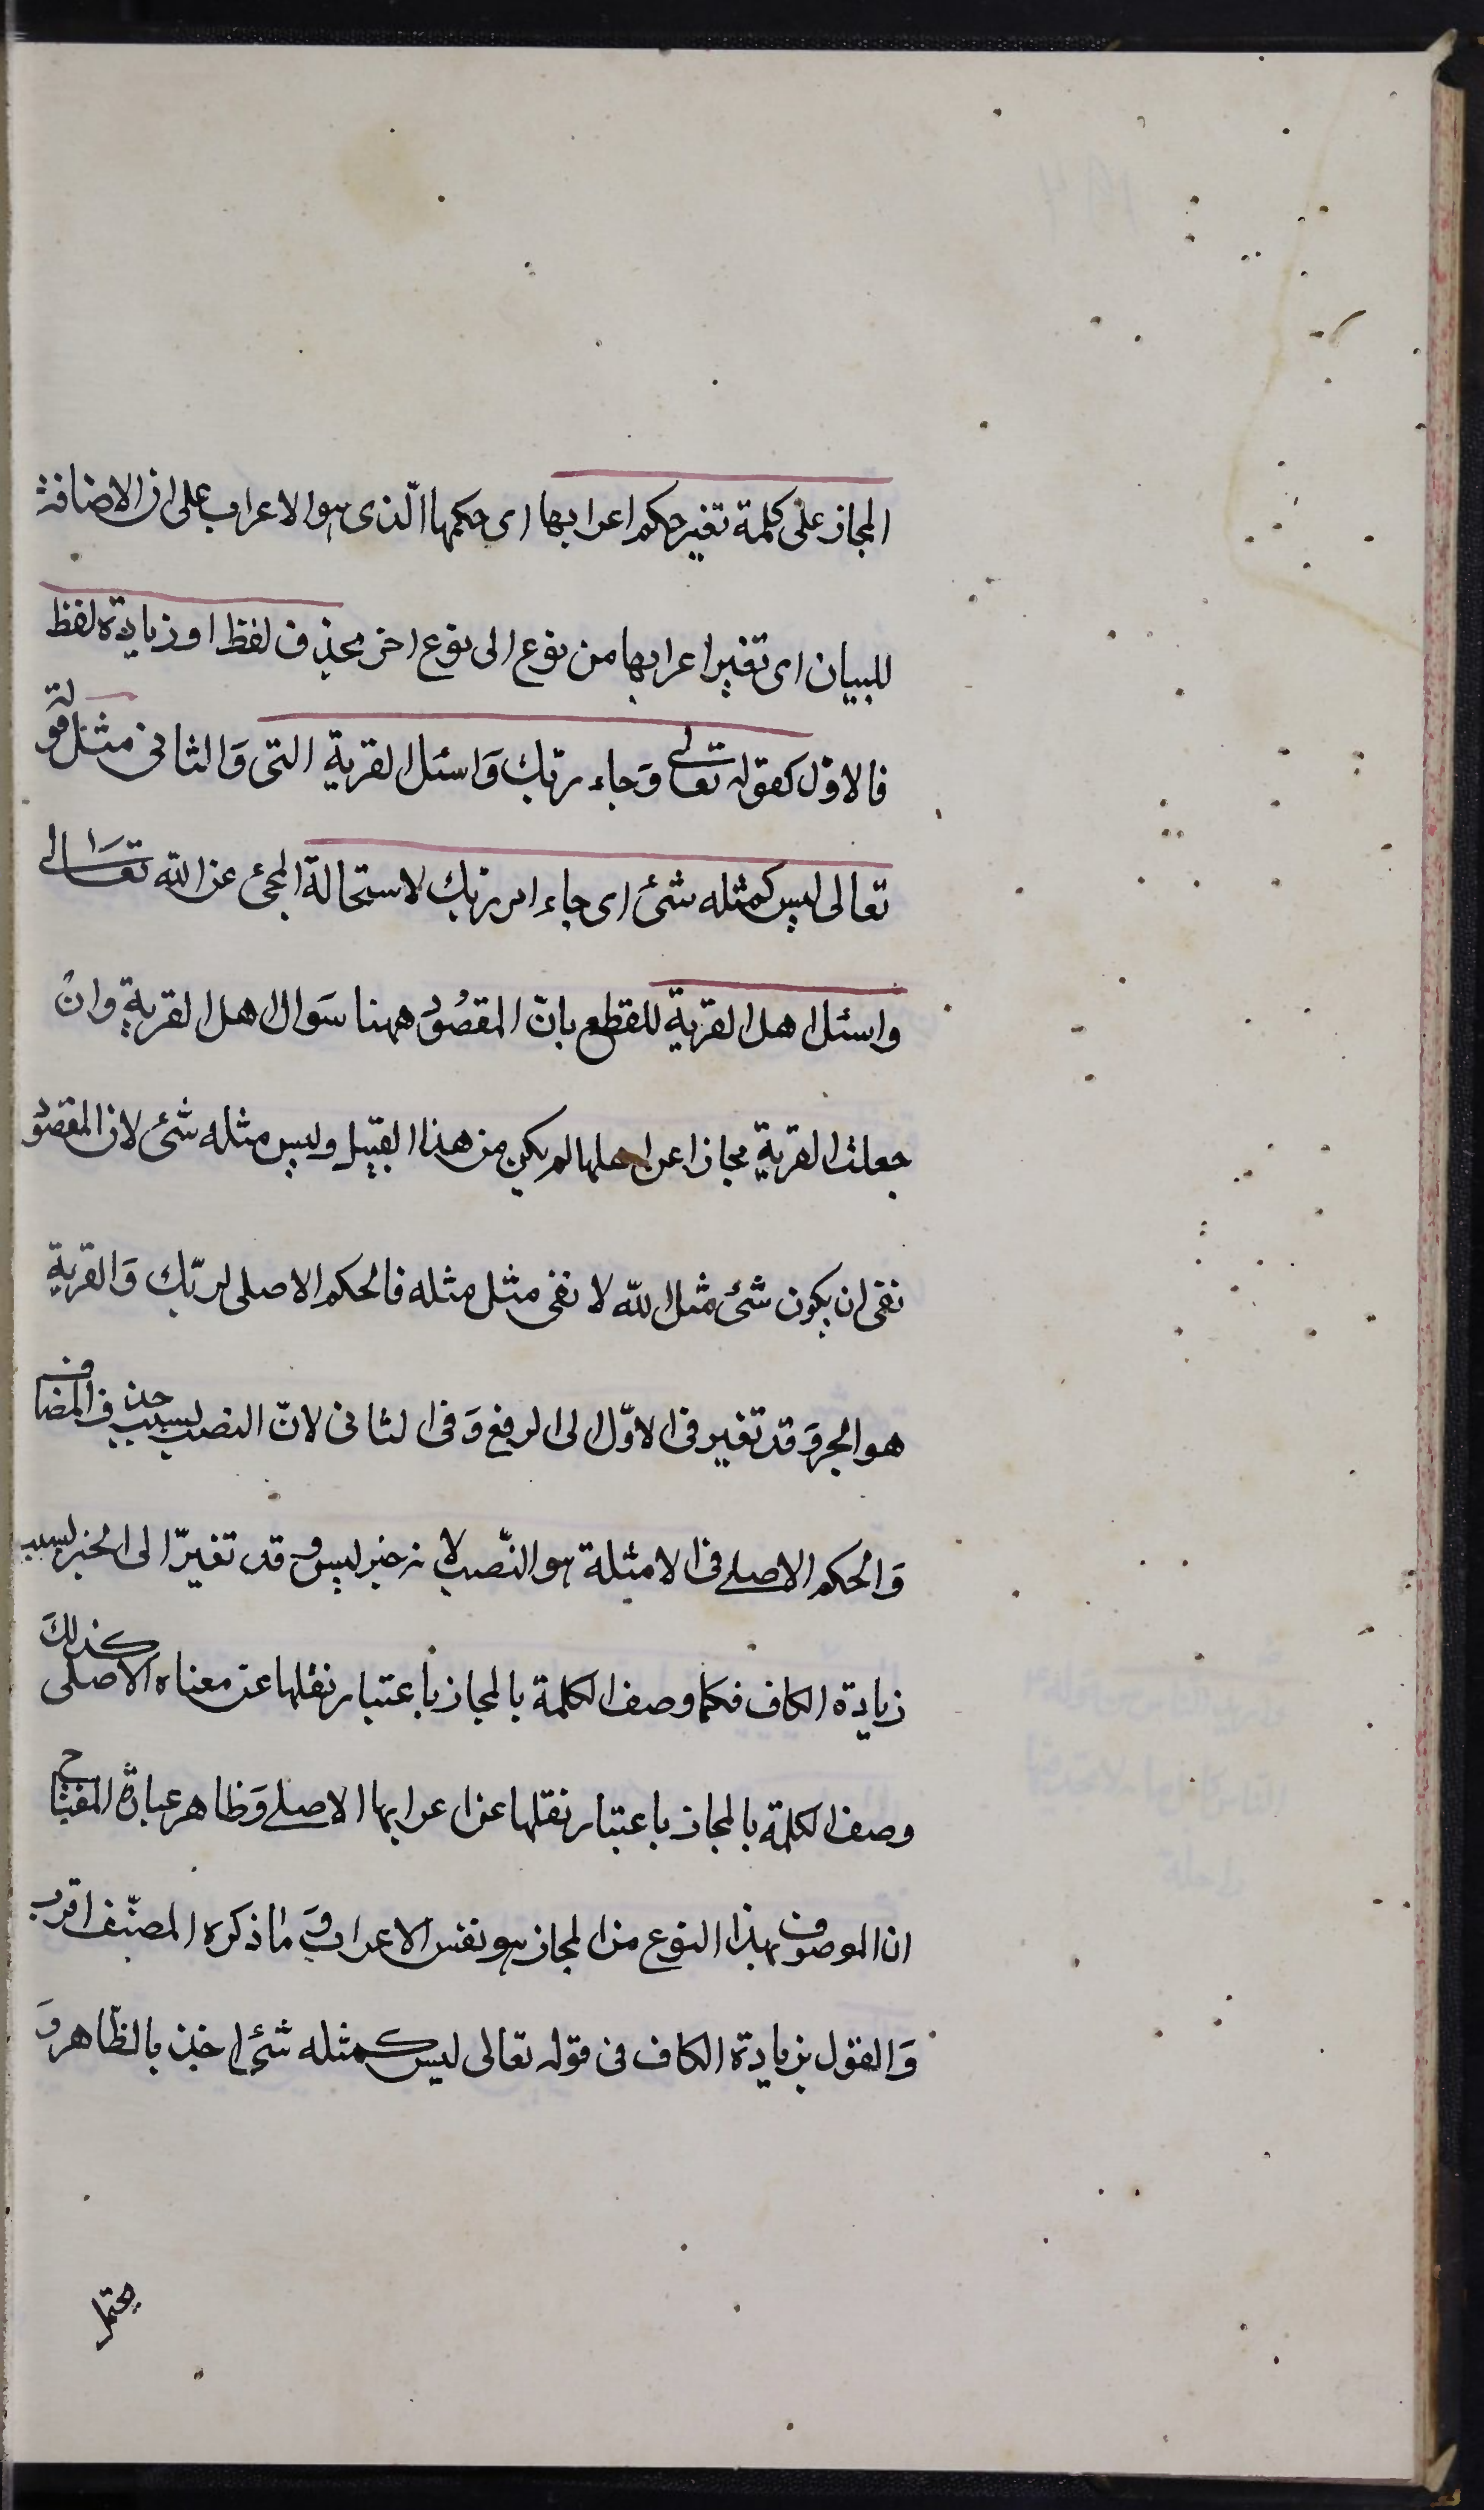 المجاز على كلمة تغير حكم اعرابها اى حكمها الّذى هو الاعراب على ان الاضافة
للبيان اى تغير اعرابها من نوع الى نوع اخر بحذف لفظ او زيادة لفظ
فالاول كقوله تعالى وَجاء ربّك وَاسئل القرية التى وَالثانى مثل قوله
تعالى ليس كمثله شئ اى جاء امر ربك لاستحالة المجئ عن الله تعَالى
واسئل اهل القرية للقطع بانّ المقصُود ههنا سَوال اهل القرية وان
جعلت القرية مجازا عن اهلها لم يكن من هذا القبيل وليس مثله شئ لان المقصُود
نفى ان يكون شئ مثل الله لا نفى مثل مثله فالحكم الاصلى لربّك وَالقرية
هو الجر وَقد تغير فى الاوّل الى الرفع وَفى الثانى لانّ النصب بسبب حذف المضاف
وَالحكم الاصلى فى الامثلة هو النّصب لانه خبر ليس وقد تغيرّ الى الخبر بسبب
زيادة الكاف فكما وصف الكلمة بالمجاز باعتبار نقلها عن معناه الاصلى كذلكَ
وصف الكلمة بالمجاز باعتبار نقلها عن اعرابها الاصلى وَظاهر عبارة المفتاح
ان الموصوف بهذا النوع من المجاز هو نفس الاعراب وَما ذكره المصنّف اقرب
وَالقول بزيادة الكاف فى قوله تعالى ليس كمثله شئ اخذ بالظاهر وَ
يحتمل